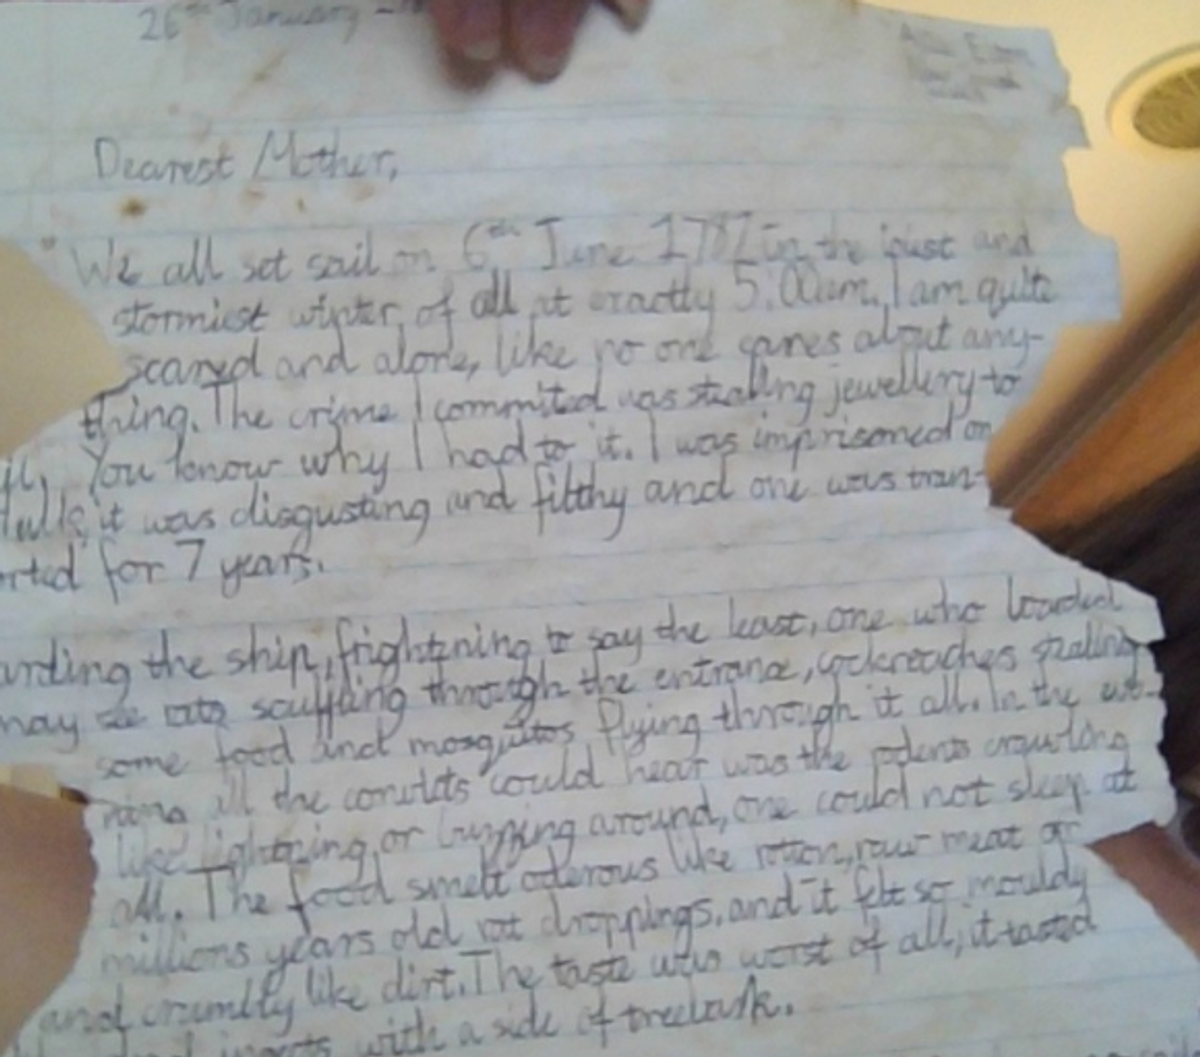 26th January
Dearest Mother,
We all set sail on 6th June 1787 in the and
stormiest winter of all at exactly 5:00am. I am quite
scared and alone, like no one cares about any-
thing. The crime I commited was stealing jewellery to
You know why I had to it. I was imprisoned on
it was disgusting and filthy and one was tran-
orted for 7 years.
arding the ship, frightning to say the least, one who boarded
may see rats scuffling through the entrance, cockreaches
some food and mosquitos flying through it all. In the
all the convicts could hear was the rodents crawling
like lightning or buzzing around, one could not sleep at
all. The food smelt oderous like rotten, raw meat or
millions years old rat droppings, and it felt so mouldy
and crumbly like dirt. The taste was worst of all, it tasted
insects with a side of treebark.